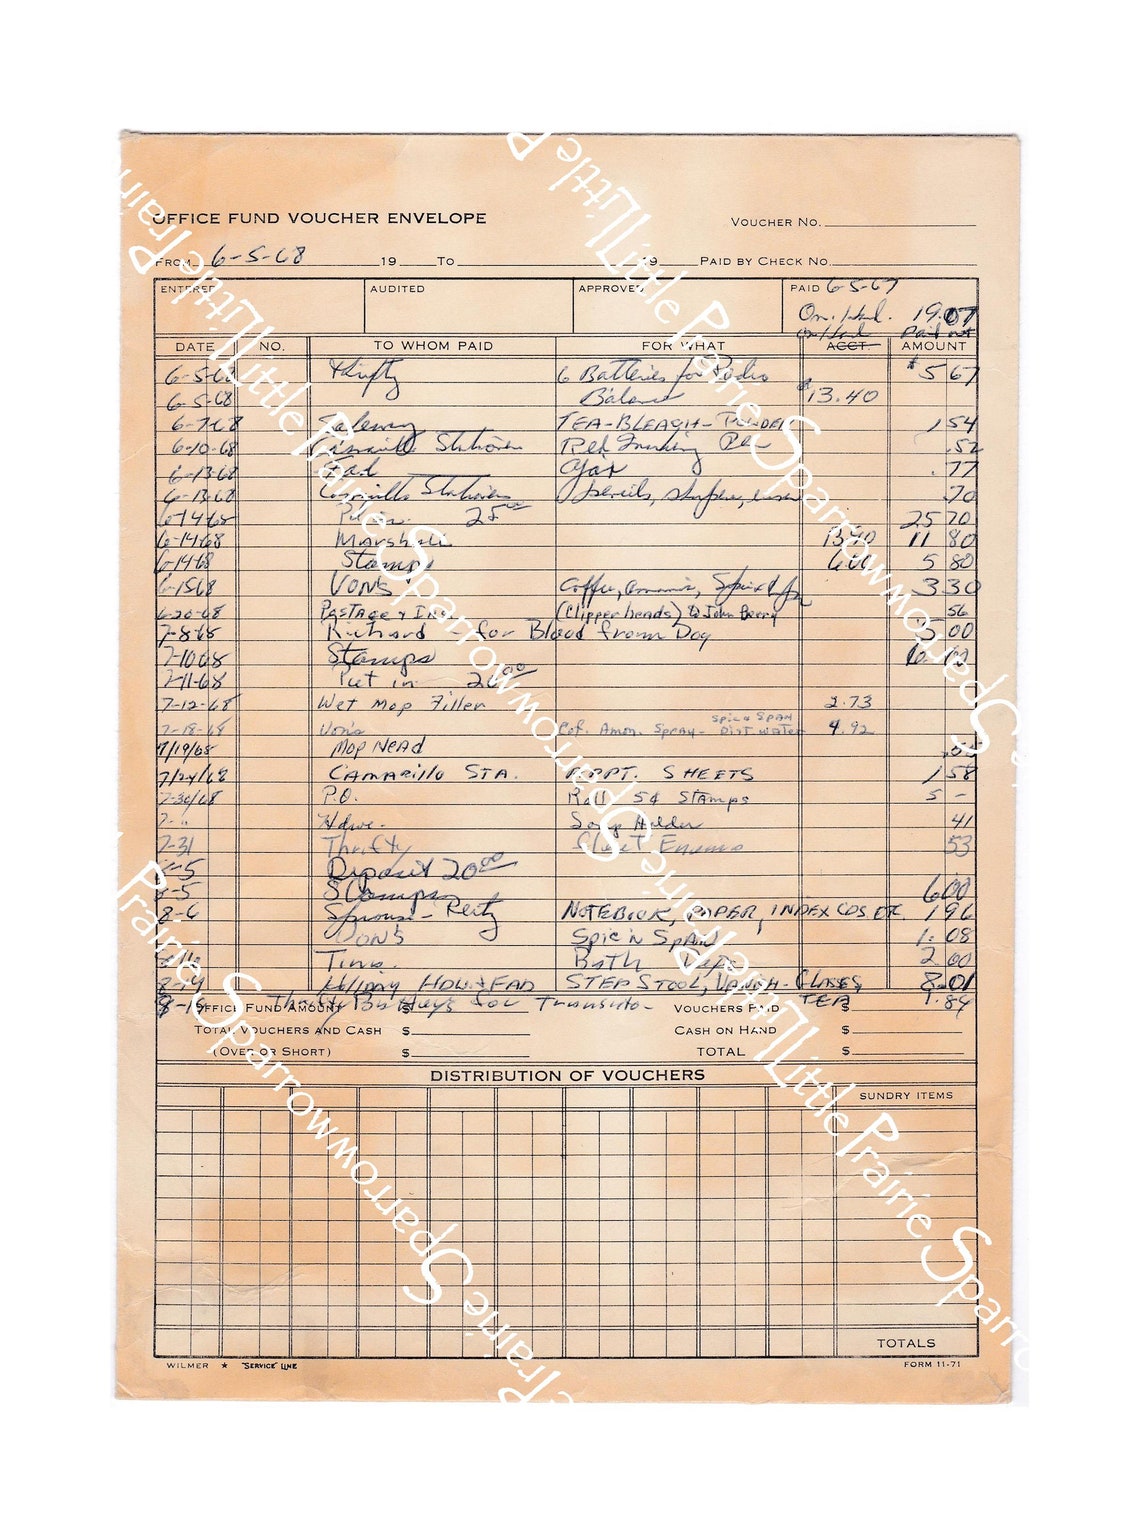 OFFICE FUND VOUCHER ENVELOPE
VOUCHER NO.
FROM 6-5-68 19 TO 19 PAID BY CHECK NO.
ENTERED AUDITED APPROVED PAID 6-5-67
On Hand. 19.07
on Hand Paid out
DATE NO. TO WHOM PAID FOR WHAT ACCT. AMOUNT
6-5-68 Thrifty 6 Batteries for Radio $5 67
6-5-68 Balance $13.40
6-7-68 Safeway TEA-BLEACH-POWDER 1 54
6-10-68 Stationers Red Marking Pen .52
6-13-68 Ajax .77
6-13-68 Stationers pencils, .70
6-14-68 Put in 25 00 25 70
6-14-68 Marshall 13 40 11 80
6-14-68 Stamps 6 00 5 80
6-15-68 VON'S Coffee, 3 30
6-20-68 Postage + Ins. (Clipper heads) to John Berry 56
7-8-68 Richard - for Blood from Dog 5 00
7-10-68 Stamps
7-11-68 Put in 20 00
7-12-68 Wet Mop Filler 2.73
7-18-68 Von's Cof. Amon. Spray- Spic & Span Dist Water 4.92
7/19/68 Mop Head
7/24/68 CAMARILLO STA. RPPT. SHEETS 1 58
7-30/68 P.O. Roll 5¢ Stamps 5 -
7- " Hdwe. Soap Holder 41
7-31 Thrifty Fleet Enema 53
8-5 Deposit 20 00
8-5 Stamps 6 00
8-6 Sprouse-Reitz NOTEBOOK, PAPER, INDEX CDS. ETC. 1 96
VON'S Spic 'n Span 1.08
Bath 2 00
8-14 Holiday HDW + FAD STEP STOOL, WATER GLASSES, 8.01
8-15 Thrifty Batterys for Transisto- TEA 1.84
OFFICE FUND AMOUNT $ VOUCHERS PAID $
TOTAL VOUCHERS AND CASH $ CASH ON HAND $
(OVER OR SHORT) $ TOTAL $
DISTRIBUTION OF VOUCHERS
SUNDRY ITEMS
TOTALS
WILMER ★ "SERVICE" LINE FORM 11-71
Little Prairie Sparrow